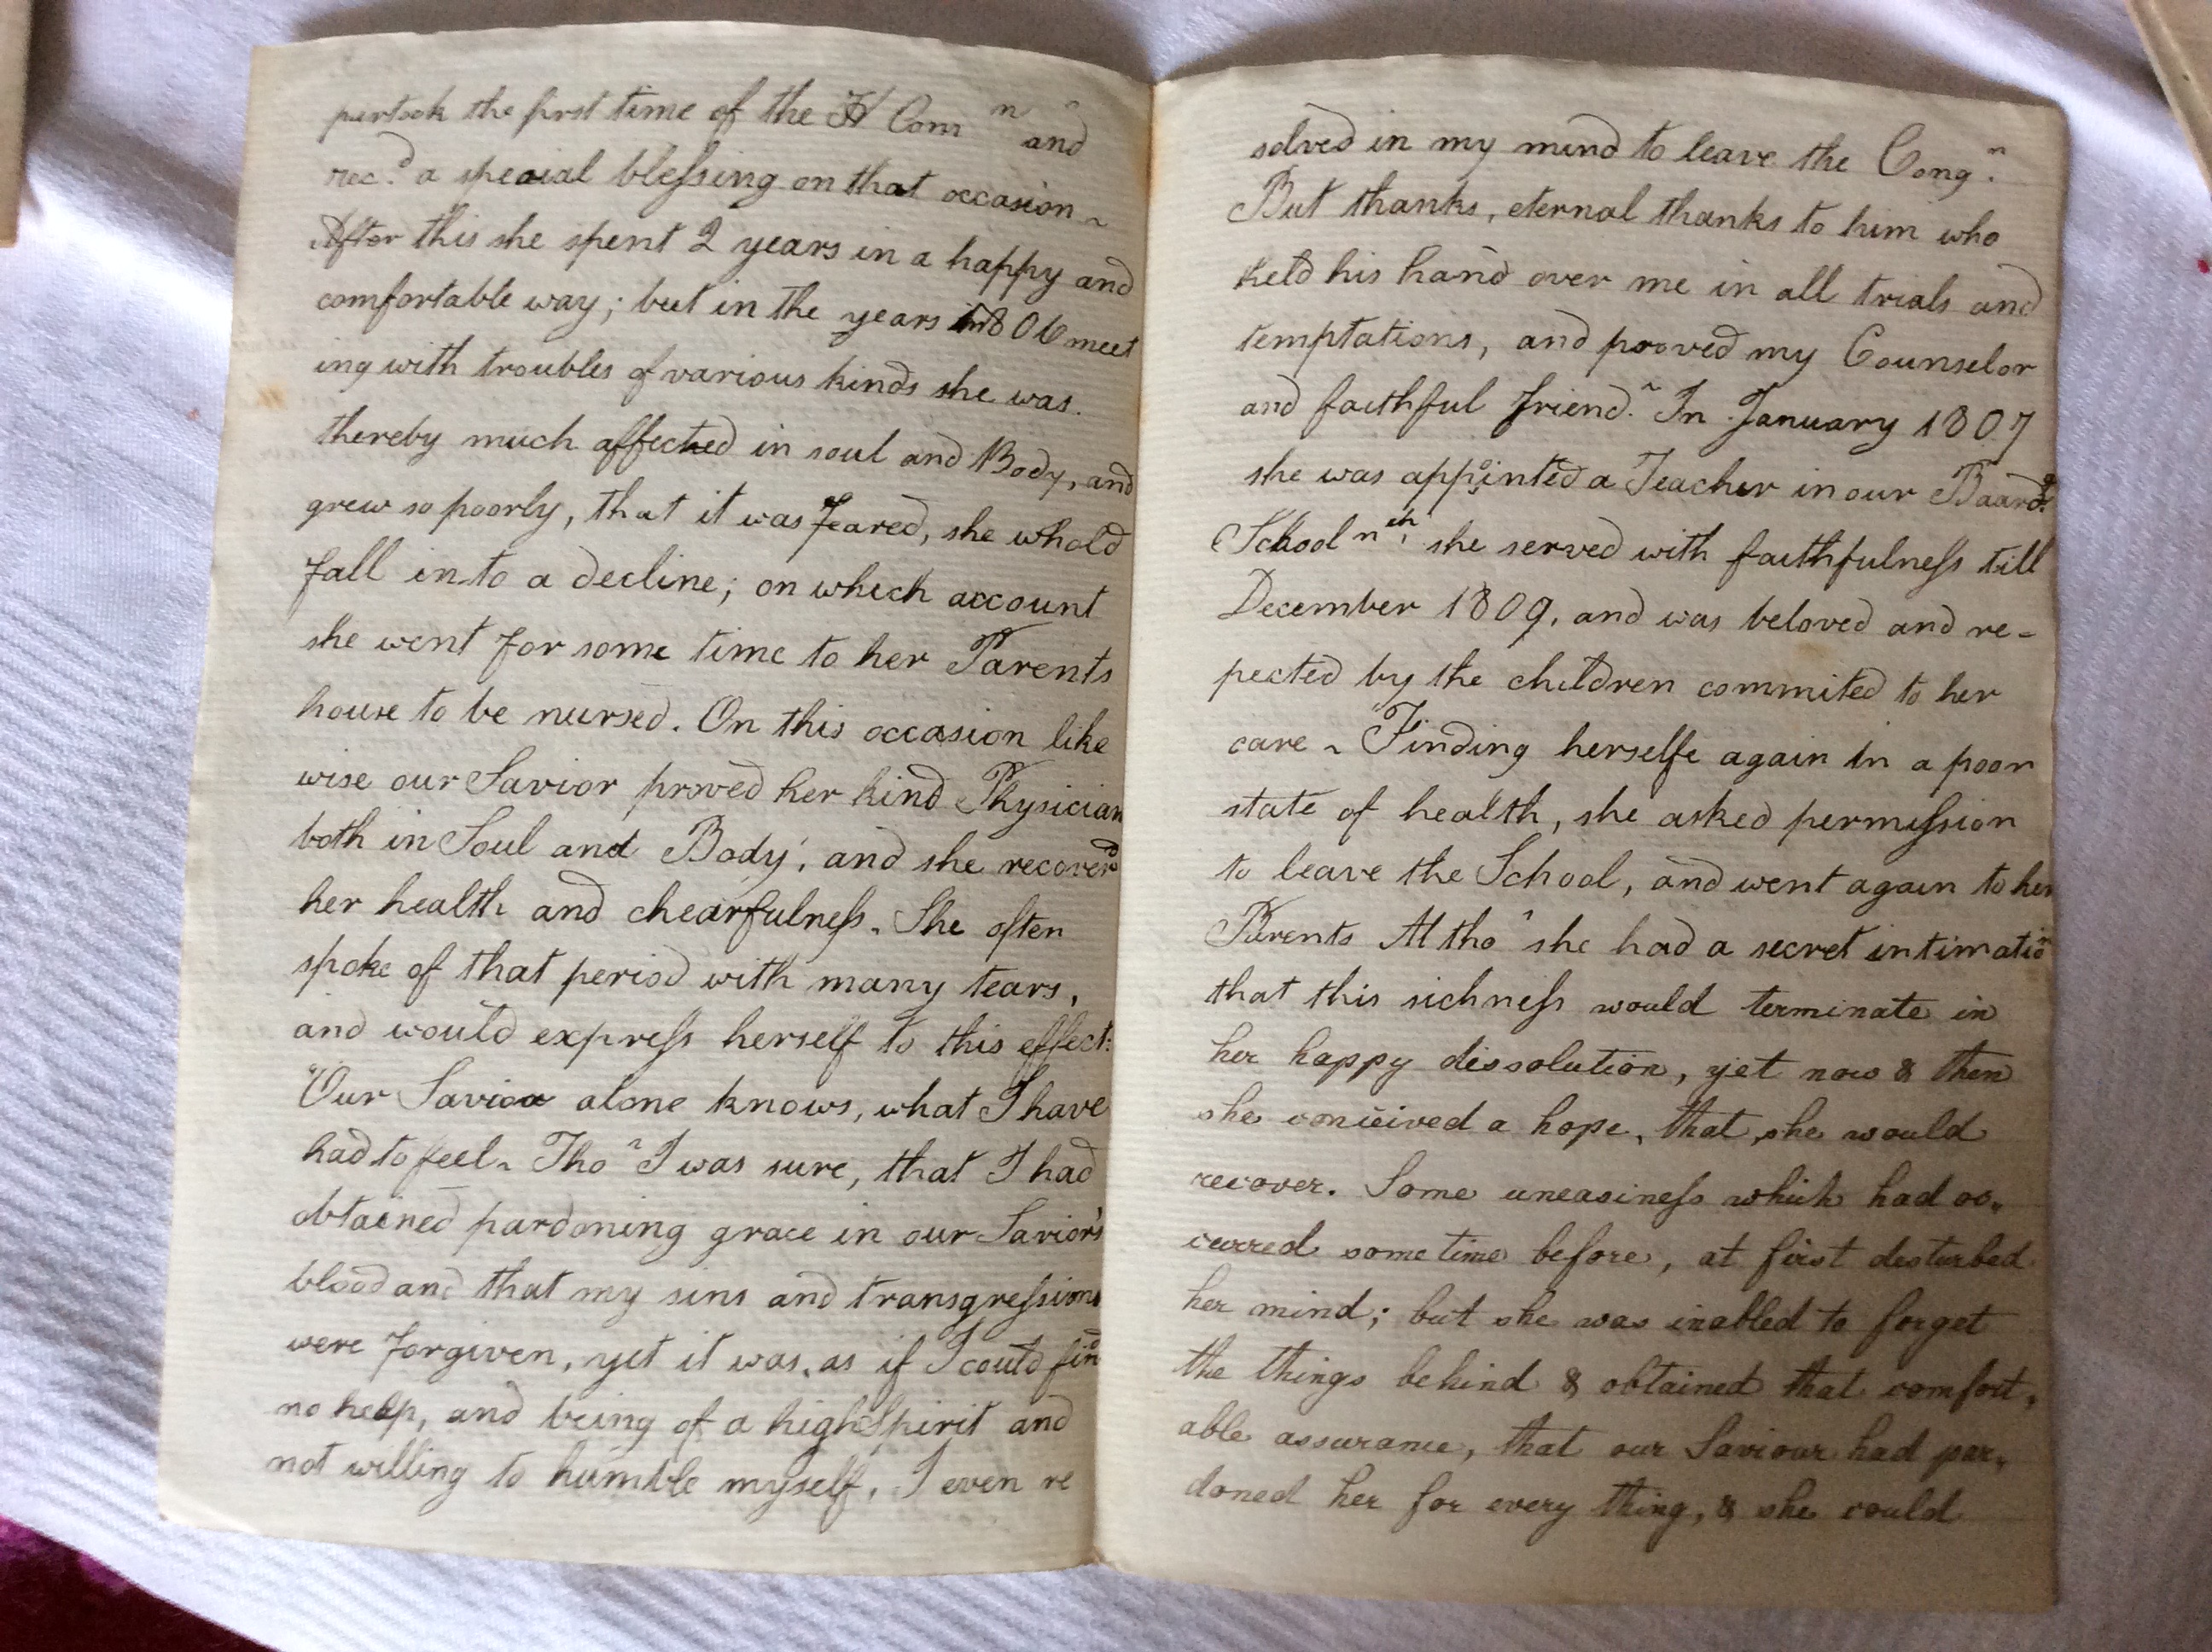 partook the first time of the H Com n and
rec.d a special blessing on that occasion ~
After this she spent 2 years in a happy and
comfortable way; but in the years 1806 meet
ing with troubles of various kinds she was.
thereby much affected in soul and Body, and
grew so poorly, that it was feared, she whold
fall into a decline; on which account
she went for some time to her Parents
house to be nursed. On this occasion like
wise our Savior proved her kind Physician
both in Soul and Body, and she recoverd
her health and chearfulneſs. She often
spoke of that period with many tears,
and would expreſs herself to this effect:
"Our Savior alone knows, what I have
had to feel ~ Tho~ I was sure, that I had
obtained pardoning grace in our Savior's
blood and that my sins and transgreſsions
were forgiven, yet it was, as if I could find
no help, and being of a high Spirit and
not willing to humble myself, I even re
solved in my mind to leave the Cong.n
But thanks, eternal thanks to him who
held his hand over me in all trials and
temptations, and prooved my Counselor
and faithful friend." In January 1807
she was appointed a Teacher in our Baard.g
School wch, she served with faithfulneſs till
December 1809, and was beloved and re-
pected by the children commited to her
care ~ Finding herselfe again in a poor
state of health, she asked permiſsion
to leave the School, and went again to her
Parents Altho' she had a secret intimatio
that this sickneſs would terminate in
her happy dissolution, yet now & then
she conceived a hope, that she would
recover. Some uneasineſs which had oc„
curred some time before, at first desturbed
her mind; but she was inabled to forget
the things behind & obtained that comfort„
able assurance, that our Saviour had par„
doned her for every thing, & she could